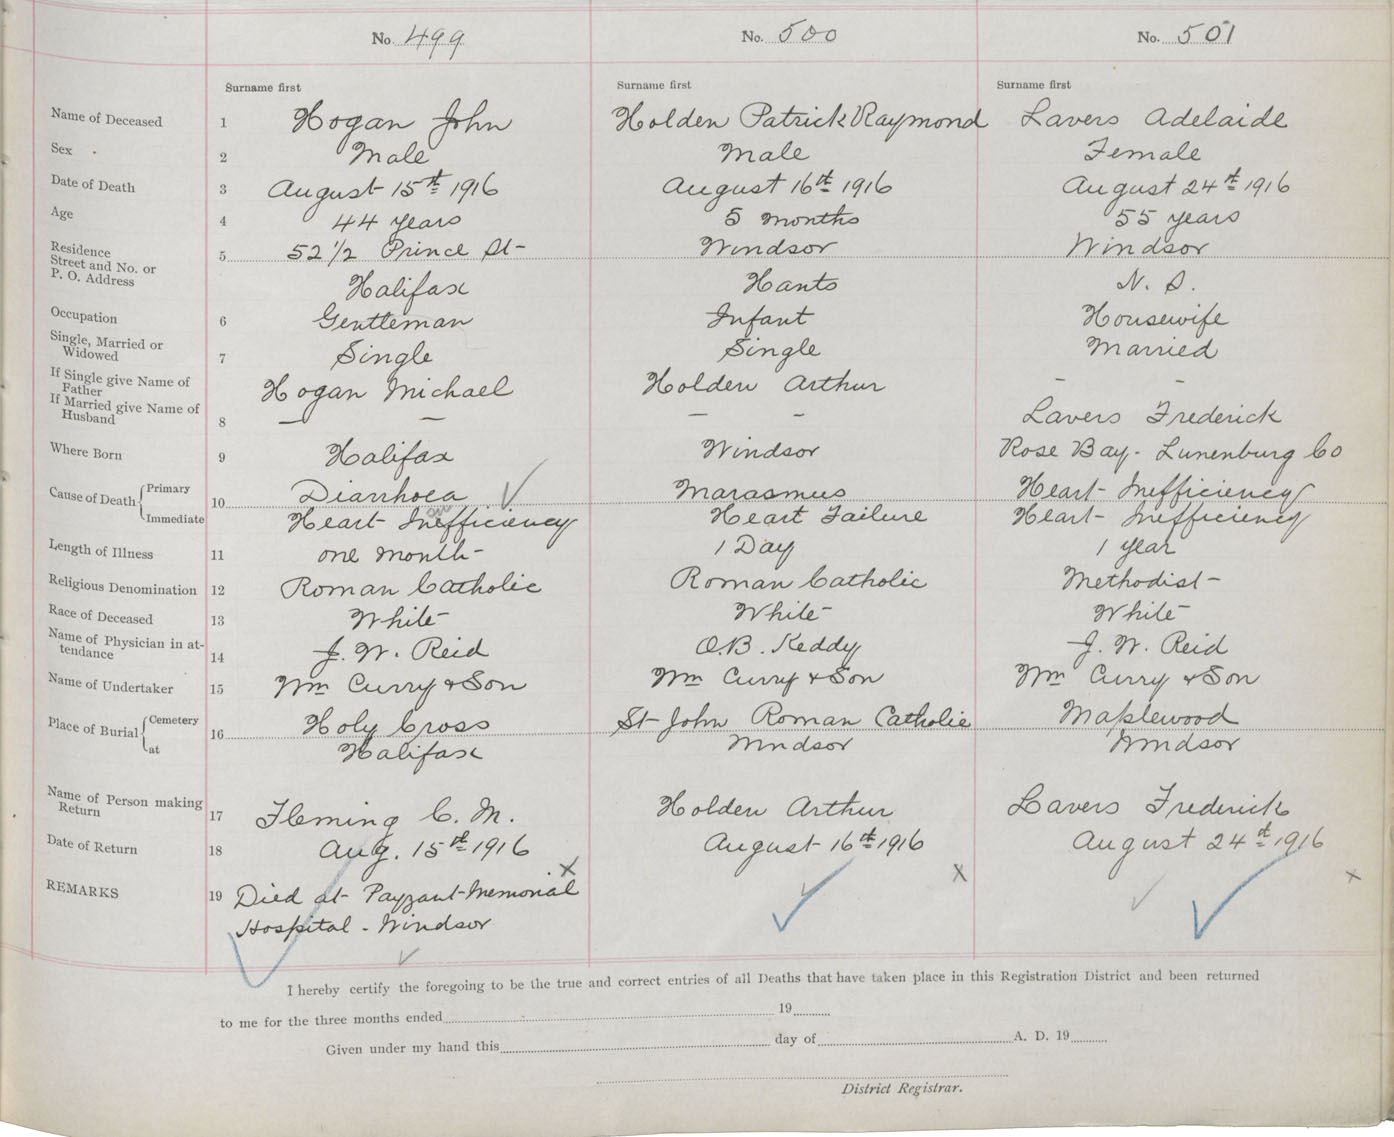 No. 499 No. 500 No. 501
Surname first Surname first Surname first
Name of Deceased 1 Hogan John Holden Patrick Raymond Lavers Adelaide
Sex 2 Male Male Female
Date of Death 3 August 15th 1916 August 16th 1916 August 24th 1916
Age 4 44 years 5 months 55 years
Residence
Street and No. or 5 52 1/2 Prince St Windsor Windsor
P. O. Address Halifax Hants N. S.
Occupation 6 Gentleman Infant Housewife
Single, Married or
Widowed 7 Single Single Married
If Single give Name of
Father Hogan Michael Holden Arthur - -
If Married give Name of
Husband 8 - - - - Lavers Frederick
Where Born 9 Halifax Windsor Rose Bay. Lunenburg Co
Cause of Death Primary 10 Diarrhoea Marasmus Heart Inefficiency
Immediate Heart Inefficiency Heart Failure Heart Inefficiency
Length of Illness 11 one month 1 Day 1 year
Religious Denomination 12 Roman Catholic Roman Catholic Methodist
Race of Deceased 13 White White White
Name of Physician in at-
tendance 14 J. W. Reid O.B. Keddy J. W. Reid
Name of Undertaker 15 Wm Curry & Son Wm Curry & Son Wm Curry & Son
Place of Burial Cemetery 16 Holy Cross St John Roman Catholic Maplewood
at Halifax Windsor Windsor
Name of Person making
Return 17 Fleming C. M. Holden Arthur Lavers Frederick
Date of Return 18 Aug. 15th 1916 August 16th 1916 August 24th 1916
REMARKS 19 Died at Payzant Memorial x x x
Hospital - Windsor
I hereby certify the foregoing to be the true and correct entries of all Deaths that have taken place in this Registration District and been returned
to me for the three months ended 19
Given under my hand this day of A. D. 19
District Registrar.